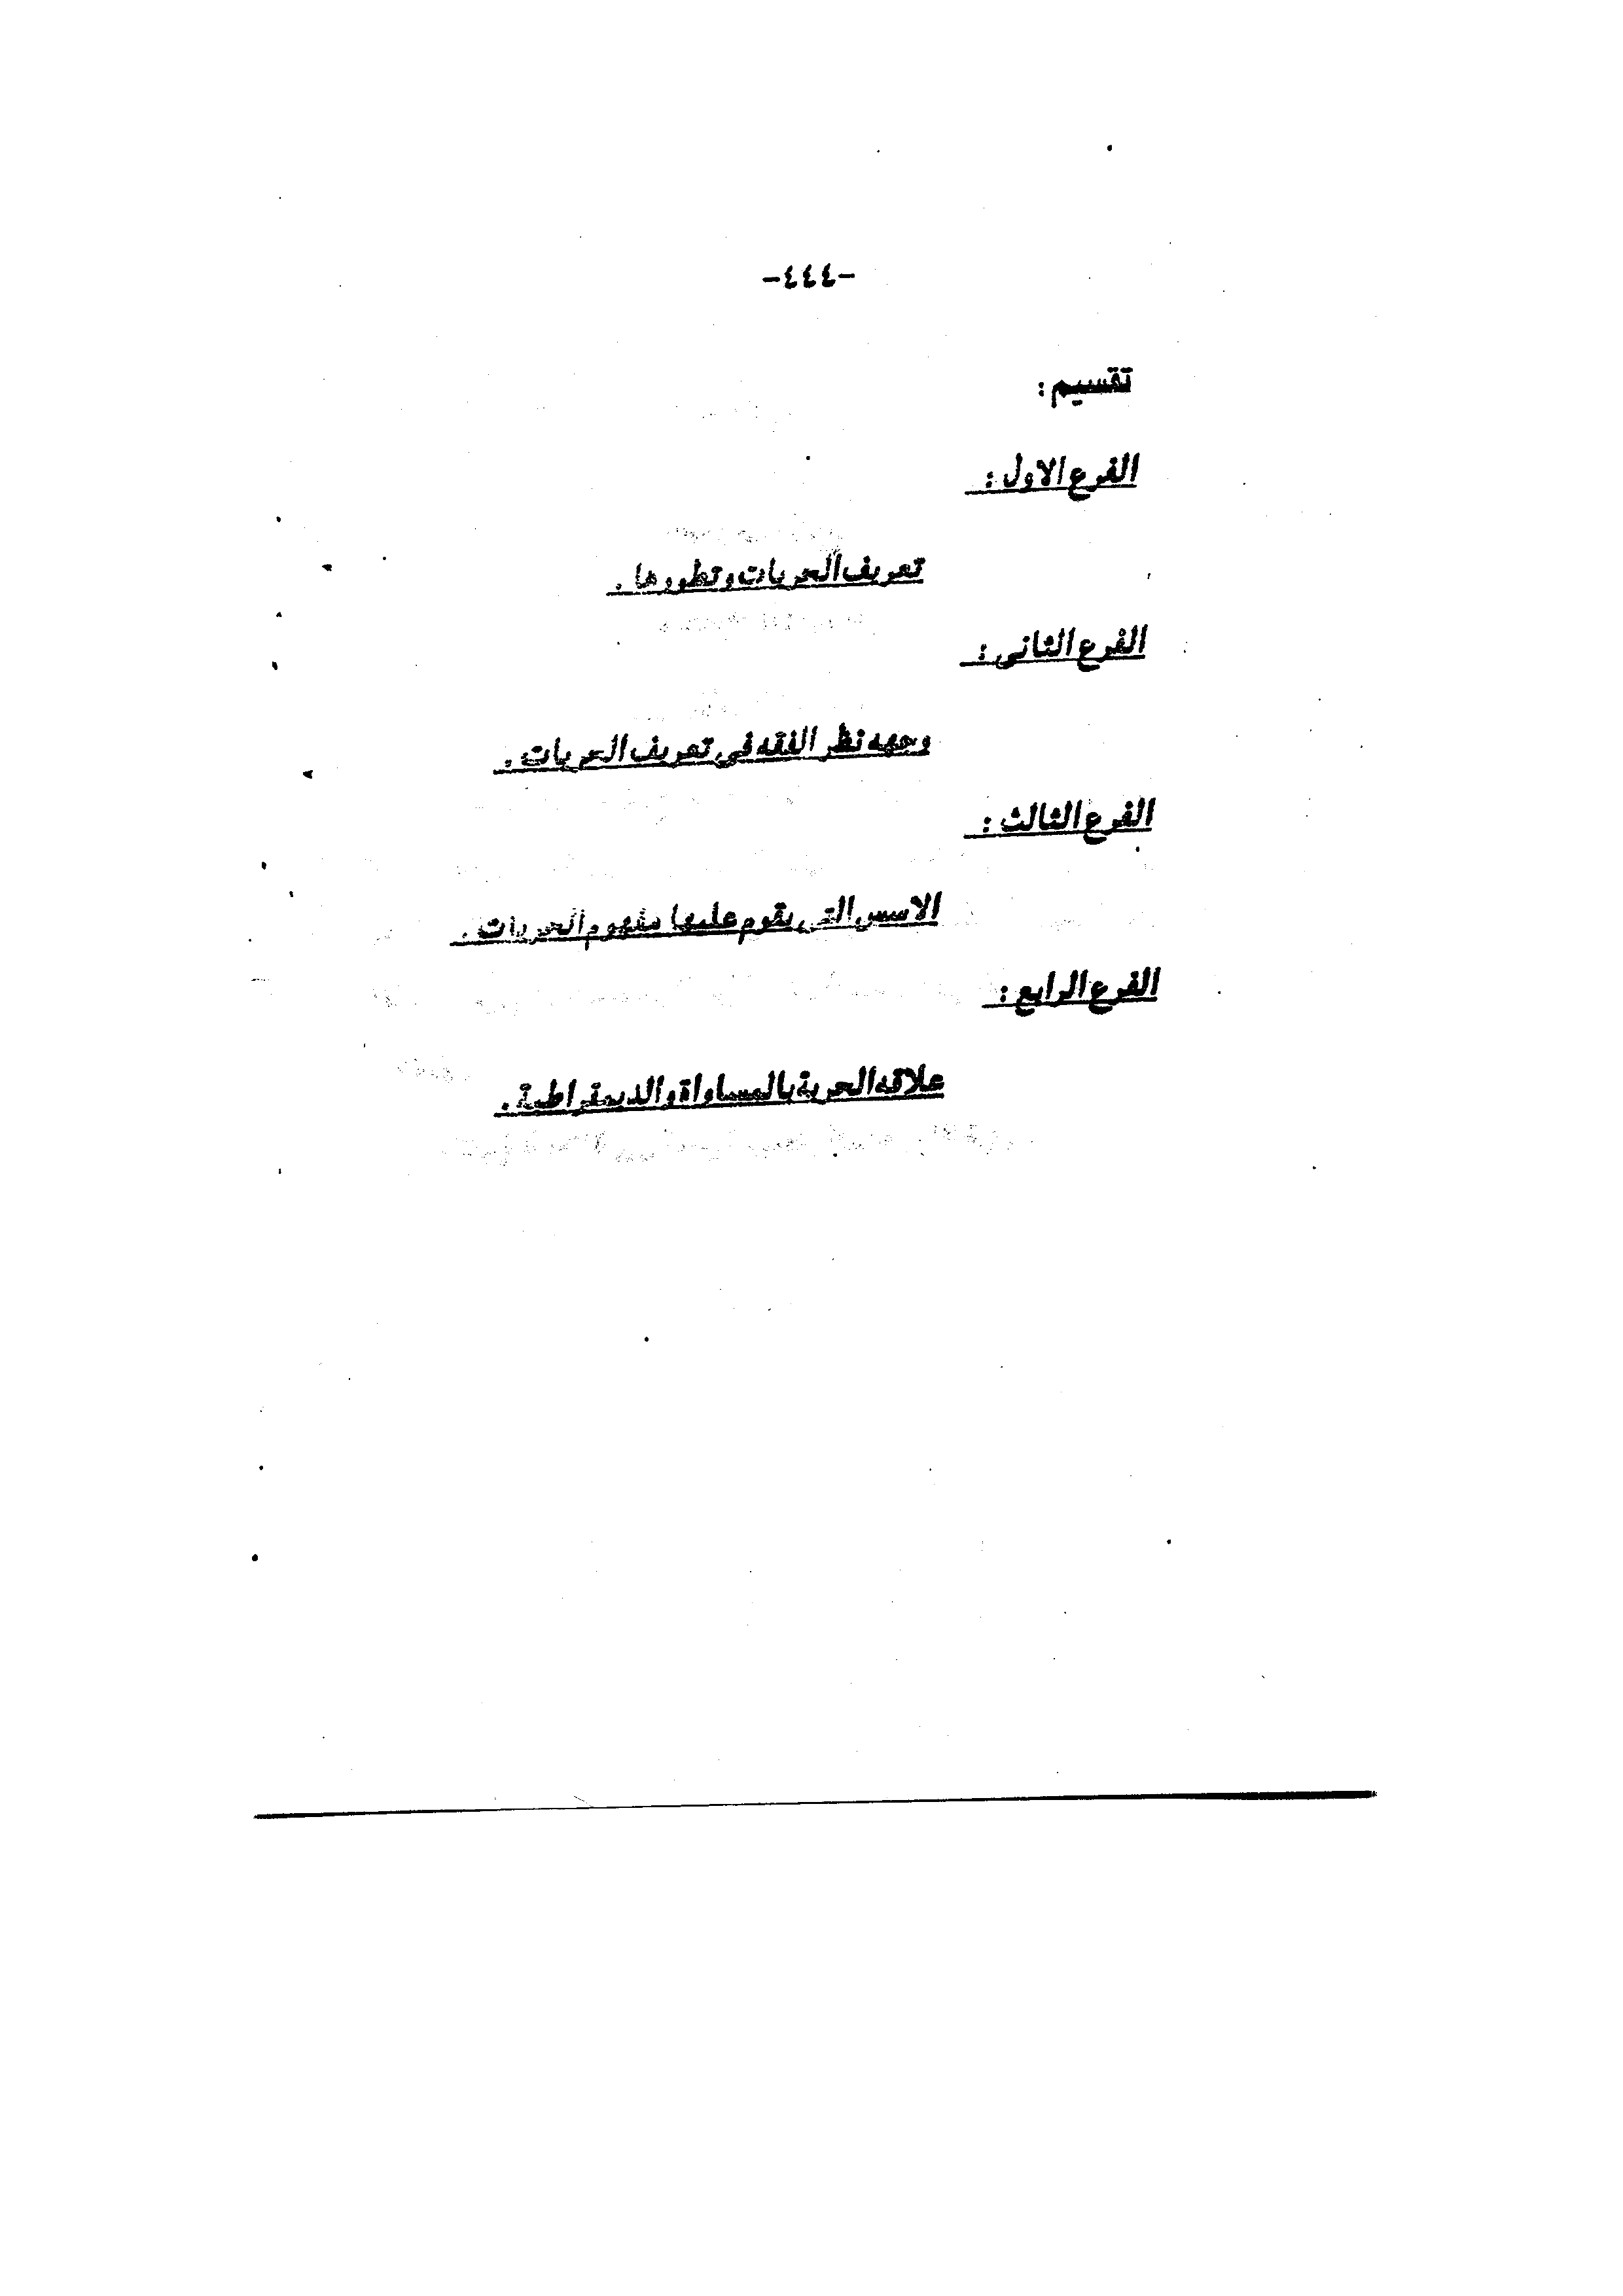 -٤٤٤-
تقسيم :
الفرع الاول :
تعريف الحريات وتطورها .
الفرع الثانى :
وجهه نظر الفقه فى تعريف الحريات .
الفرع الثالث :
الاسس التى يقوم عليها مفهوم الحريات .
الفرع الرابع :
علاقه الحرية بالمساواة والديمقراطية .